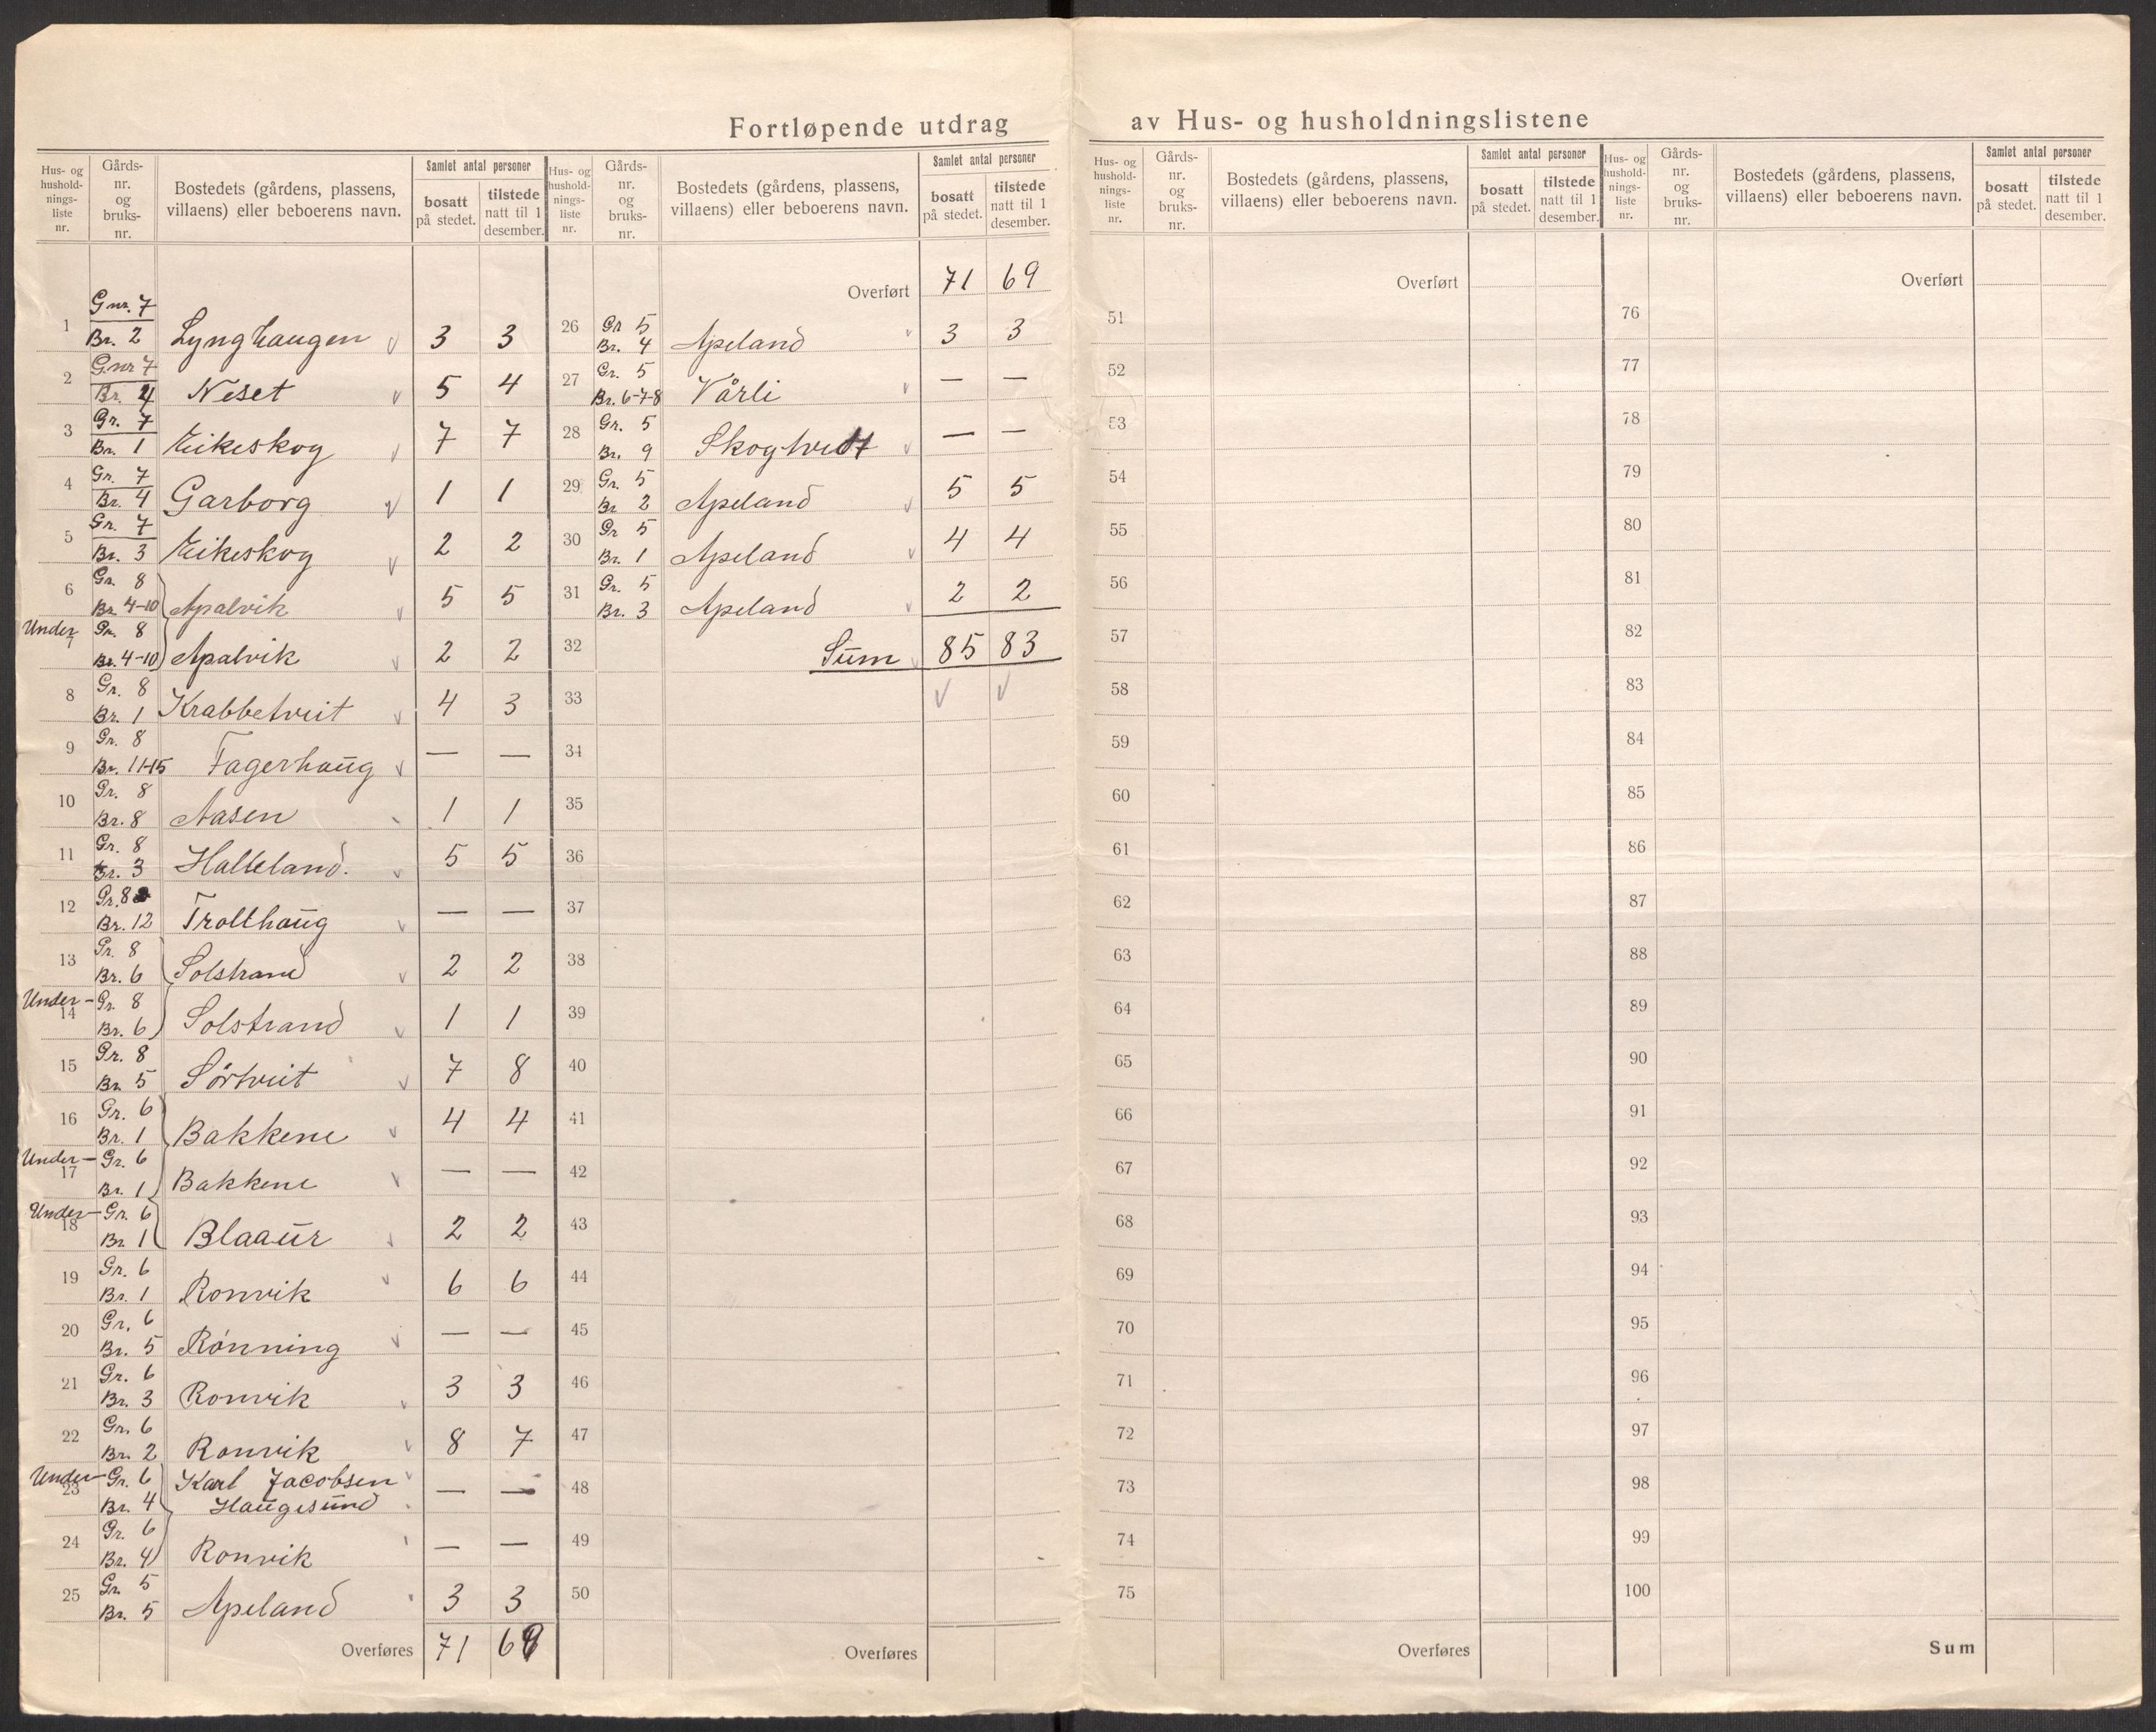 Fortløpende utdrag av Hus- og husholdningslistene
Hus- og hushold-nings-liste nr. Gårds-nr. og bruks-nr. Bostedets (gårdens, plassens, villaens) eller beboerens navn. Samlet antal personer bosatt på stedet. tilstede natt til 1 desember.
1 Gnr. 7 Br. 2 Lynghaugen v 3 3
2 Gnr 7 Br. 4 Neset v 5 4
3 Gr. 7 Br. 1 Eikeskog v 7 7
4 Gr. 7 Br. 4 Garborg v 1 1
5 Gr. 7 Br. 3 Eikeskog v 2 2
6 Gr. 8 Br. 4-10 Apalvik v 5 5
Under 7 Gr. 8 Br. 4-10 Apalvik v 2 2
8 Gr. 8 Br. 1 Krabbetveit v 4 3
9 Gr. 8 Br. 11-15 Fagerhaug v — —
10 Gr. 8 Br. 8 Aasen 1 1
11 Gr. 8 Br. 3 Halleland. v 5 5
12 Gr. 8 Br. 12 Trollhaug v — —
13 Gr. 8 Br. 6 Solstrand v 2 2
Under- 14 Gr. 8 Br. 6 Solstrand v 1 1
15 Gr. 8 Br. 5 Sörtveit v 7 8
16 Gr. 6 Br. 1 Bakkene v 4 4
Under- 17 Gr. 6 Br. 1 Bakkene v — —
Under- 18 Gr. 6 Br. 1 Blaaur v 2 2
19 Gr. 6 Br. 1 Ronvik v 6 6
20 Gr. 6 Br. 5 Rönning v — —
21 Gr. 6 Br. 3 Ronvik v 3 3
22 Gr. 6 Br. 2 Ronvik v 8 7
Under- 23 Gr. 6 Br. 4 Karl Jacobsen v — —
Haugesund
24 Gr. 6 Br. 4 Ronvik — —
25 Gr. 5 Br. 5 Apeland 3 3
Overføres 71 69
Hus- og hushold-nings-liste nr. Gårds-nr. og bruks-nr. Bostedets (gårdens, plassens, villaens) eller beboerens navn. Samlet antal personer bosatt på stedet. tilstede natt til 1 desember.
Overført 71 69
26 Gr 5 Br. 4 Apeland v 3 3
27 Gr. 5 Br. 6-7-8 Vårli v — —
28 Gr. 5 Br. 9 Skogtvedt v — —
29 Gr. 5 Br 2 Apeland v 5 5
30 Gr 5 Br. 1 Apeland v 4 4
31 Gr. 5 Br. 3 Apeland v 2 2
32 Sum v 85 83
33 v v
34
35
36
37
38
39
40
41
42
43
44
45
46
47
48
49
50
Overføres
Hus- og hushold-nings-liste nr. Gårds-nr. og bruks-nr. Bostedets (gårdens, plassens, villaens) eller beboerens navn. Samlet antal personer bosatt på stedet. tilstede natt til 1 desember.
Overført
51
52
53
54
55
56
57
58
59
60
61
62
63
64
65
66
67
68
69
70
71
72
73
74
75
Overføres
Hus- og hushold-nings-liste nr. Gårds-nr. og bruks-nr. Bostedets (gårdens, plassens, villaens) eller beboerens navn. Samlet antal personer bosatt på stedet. tilstede natt til 1 desember.
Overført
76
77
78
79
80
81
82
83
84
85
86
87
88
89
90
91
92
93
94
95
96
97
98
99
100
Sum